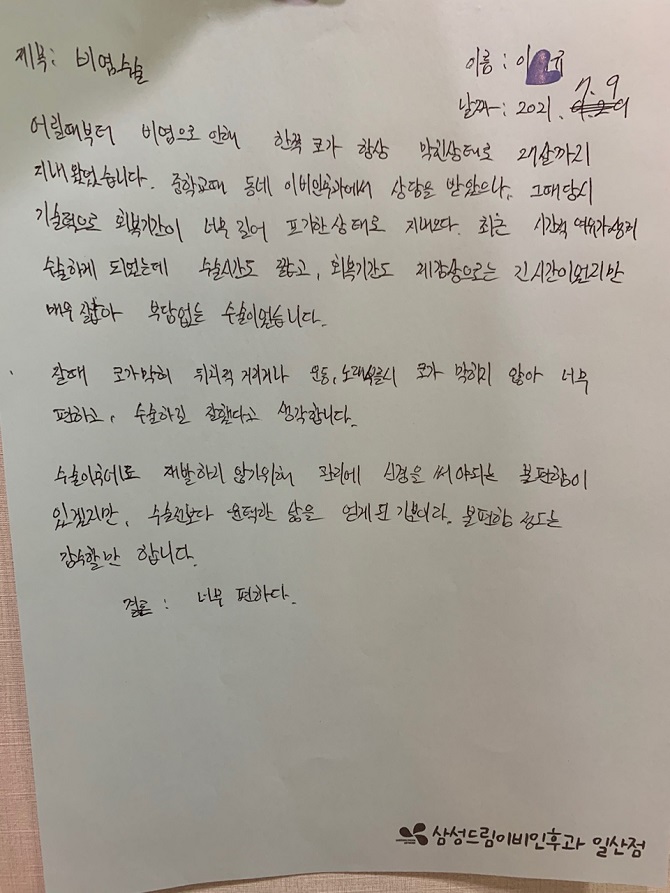 제목: 비염수술
이름: 이 규
날짜: 2021. 7. 9
어릴때부터 비염으로 인해 한쪽 코가 항상 막힌상태로 27살까지
지내 왔었습니다. 중학교때 동네 이비인후과에서 상담을 받았으나, 그때당시
기술력으로 회복기간이 너무 길어 포기한 상태로 지내오다. 최근 시간적 여유가 생겨
수술하게 되었는데 수술시간도 짧고, 회복기간도 체감상으로는 긴시간이였지만
매우 짧아 부담없는 수술이였습니다.
잘때 코가막혀 뒤척거리거나 운동, 노래부를시 코가 막히지 않아 너무
편하고, 수술하긴 잘했다고 생각합니다.
수술이후에도 재발하지 않기위해 관리에 신경을 써야되는 불편함이
있겠지만, 수술전보다 윤택한 삶을 얻게된 기분이라. 불편함 정도는
감수할만 합니다.
결론: 너무 편하다.
삼성드림이비인후과 일산점